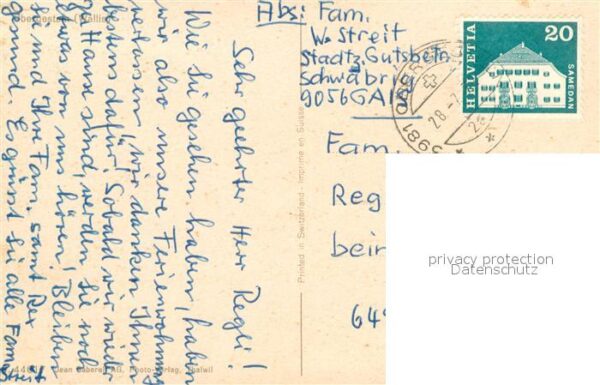 Obergesteln (Wallis)
Sehr geehrter Herr Regli!
Wie Sie gesehen haben, haben
wir also unsere Ferienwohnung
verlassen, wir danken Ihnen
bestens dafür! Sobald wir wieder
zu Hause sind, werden Sie noch
etwas von uns hören! Bleiben
Sie und Ihre Fam. samt Rex
gesund. Es grüsst Sie alle Fam.
Streit
Jean Gaberell AG, Photo-Verlag, Thalwil
Printed in Switzerland - Imprimé en Suisse
Abs: Fam.
W. Streit
Stadtz. Gutsbetr.
Schwäbr
9056 GAIS
HELVETIA
20
SAMEDAN
3981
28.-7
Fam.
Reg
bein
649
privacy protection
Datenschutz